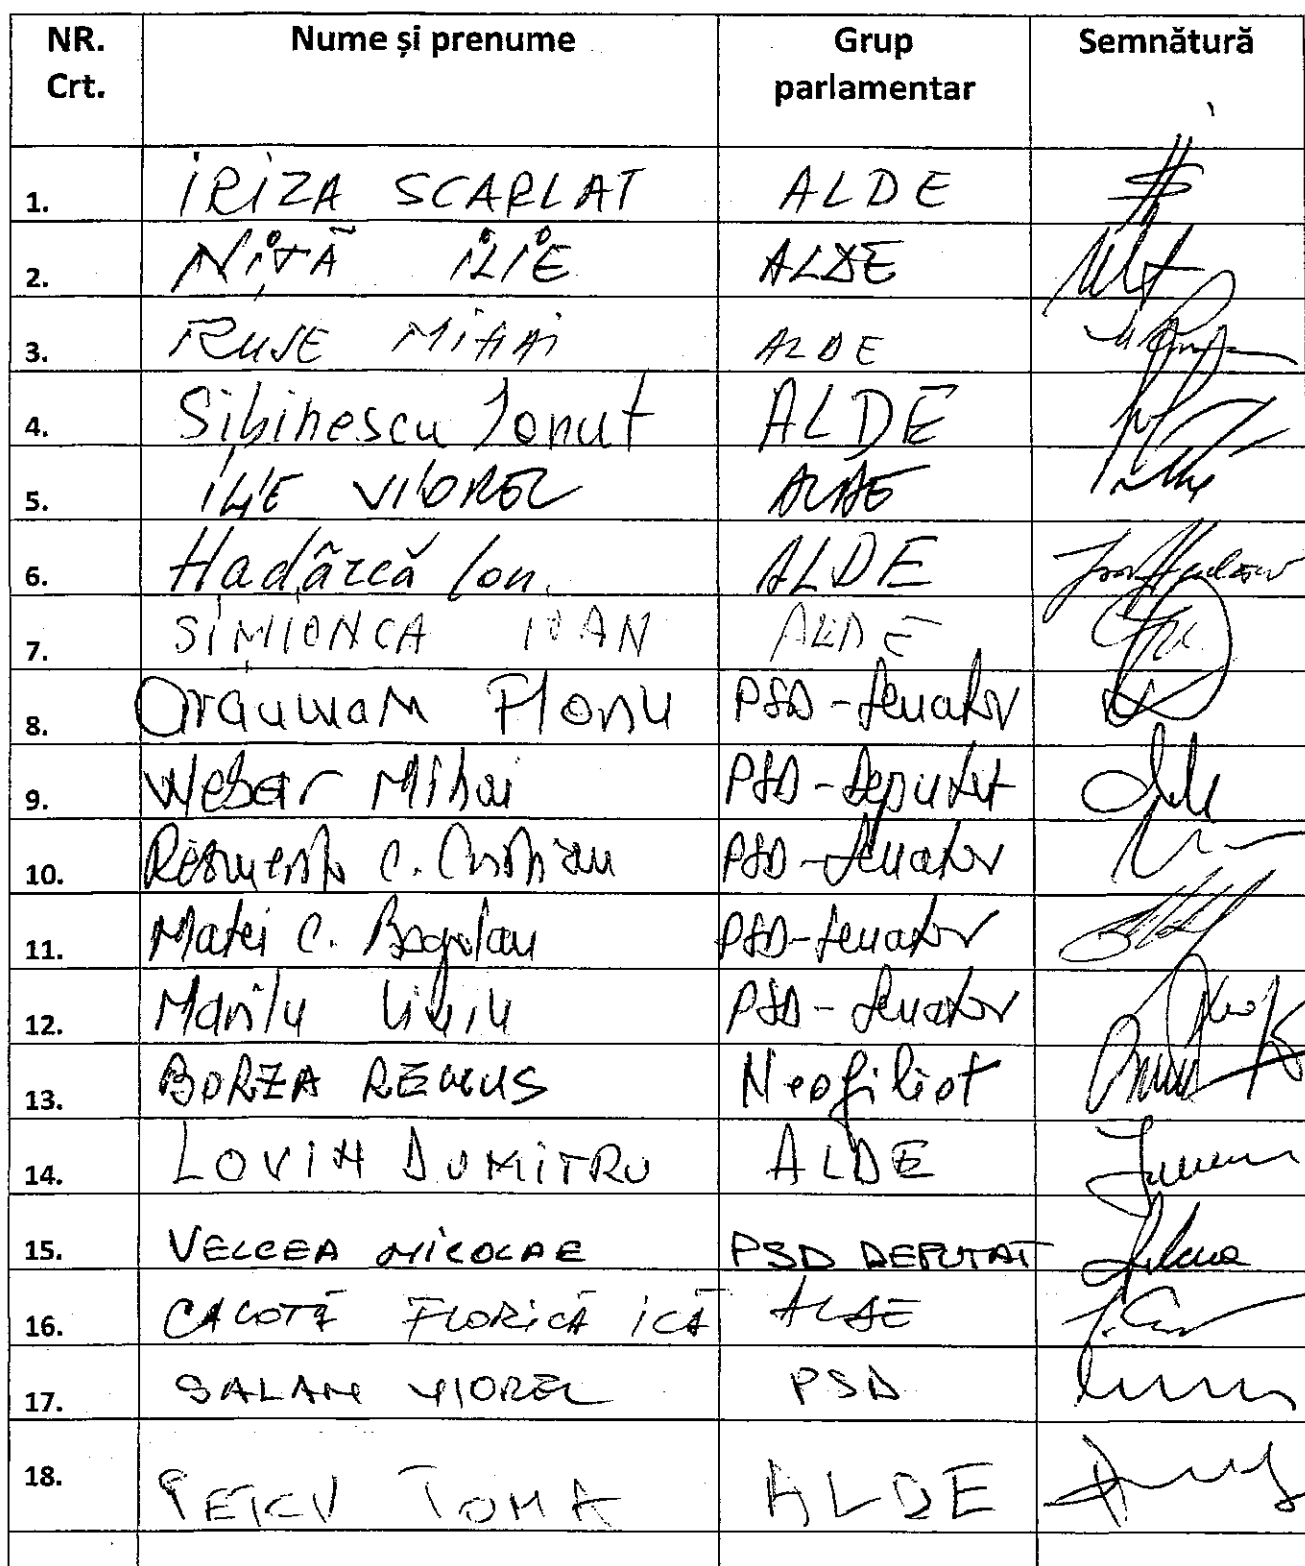 NR. Crt. Nume și prenume Grup parlamentar Semnătură
1. IRIZA SCARLAT ALDE
2. NIȚĂ ILIE ALDE
3. RUSE MIHAI ALDE
4. Sibinescu Ionut ALDE
5. ILIE VIOREL ALDE
6. Hadârcă Ion. ALDE
7. SIMIONCA IOAN ALDE
8. PSD - Senator
9. Weber Mihai PSD - Deputat
10. C. Cristian PSD - Senator
11. Matei C. Bogdan PSD - Senator
12. PSD - Senator
13. BORZA REMUS Neafiliat
14. LOVIN DUMITRU ALDE
15. VELCEA NICOLAE PSD DEPUTAT
16. CALOTĂ FLORICĂ ICĂ ALDE
17. SALAN VIOREL PSD
18. PETCU TOMA ALDE